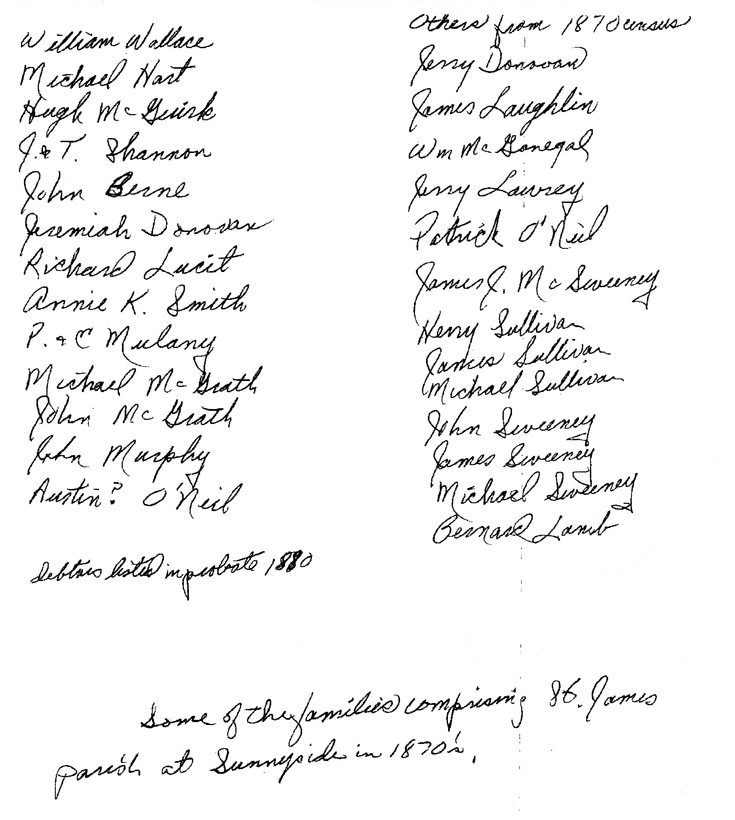 William Wallace
Michael Hart
Hugh McGuirk
J. & T. Shannon
John Berne
Jeremiah Donovan
Richard Lucit
Annie K. Smith
P. & C Mulany
Michael McGrath
John McGrath
John Murphy
Austin? O'Neil
debtors listed in probate 1880
Others from 1870 census
Jerry Donovan
James Laughlin
Wm McGonegal
Jerry Lawrey
Patrick O'Neil
James J. McSweeney
Henry Sullivan
James Sullivan
Michael Sullivan
John Sweeney
James Sweeney
Michael Sweeney
Bernard Lamb
Some of the families comprising St. James
parish at Sunnyside in 1870's.